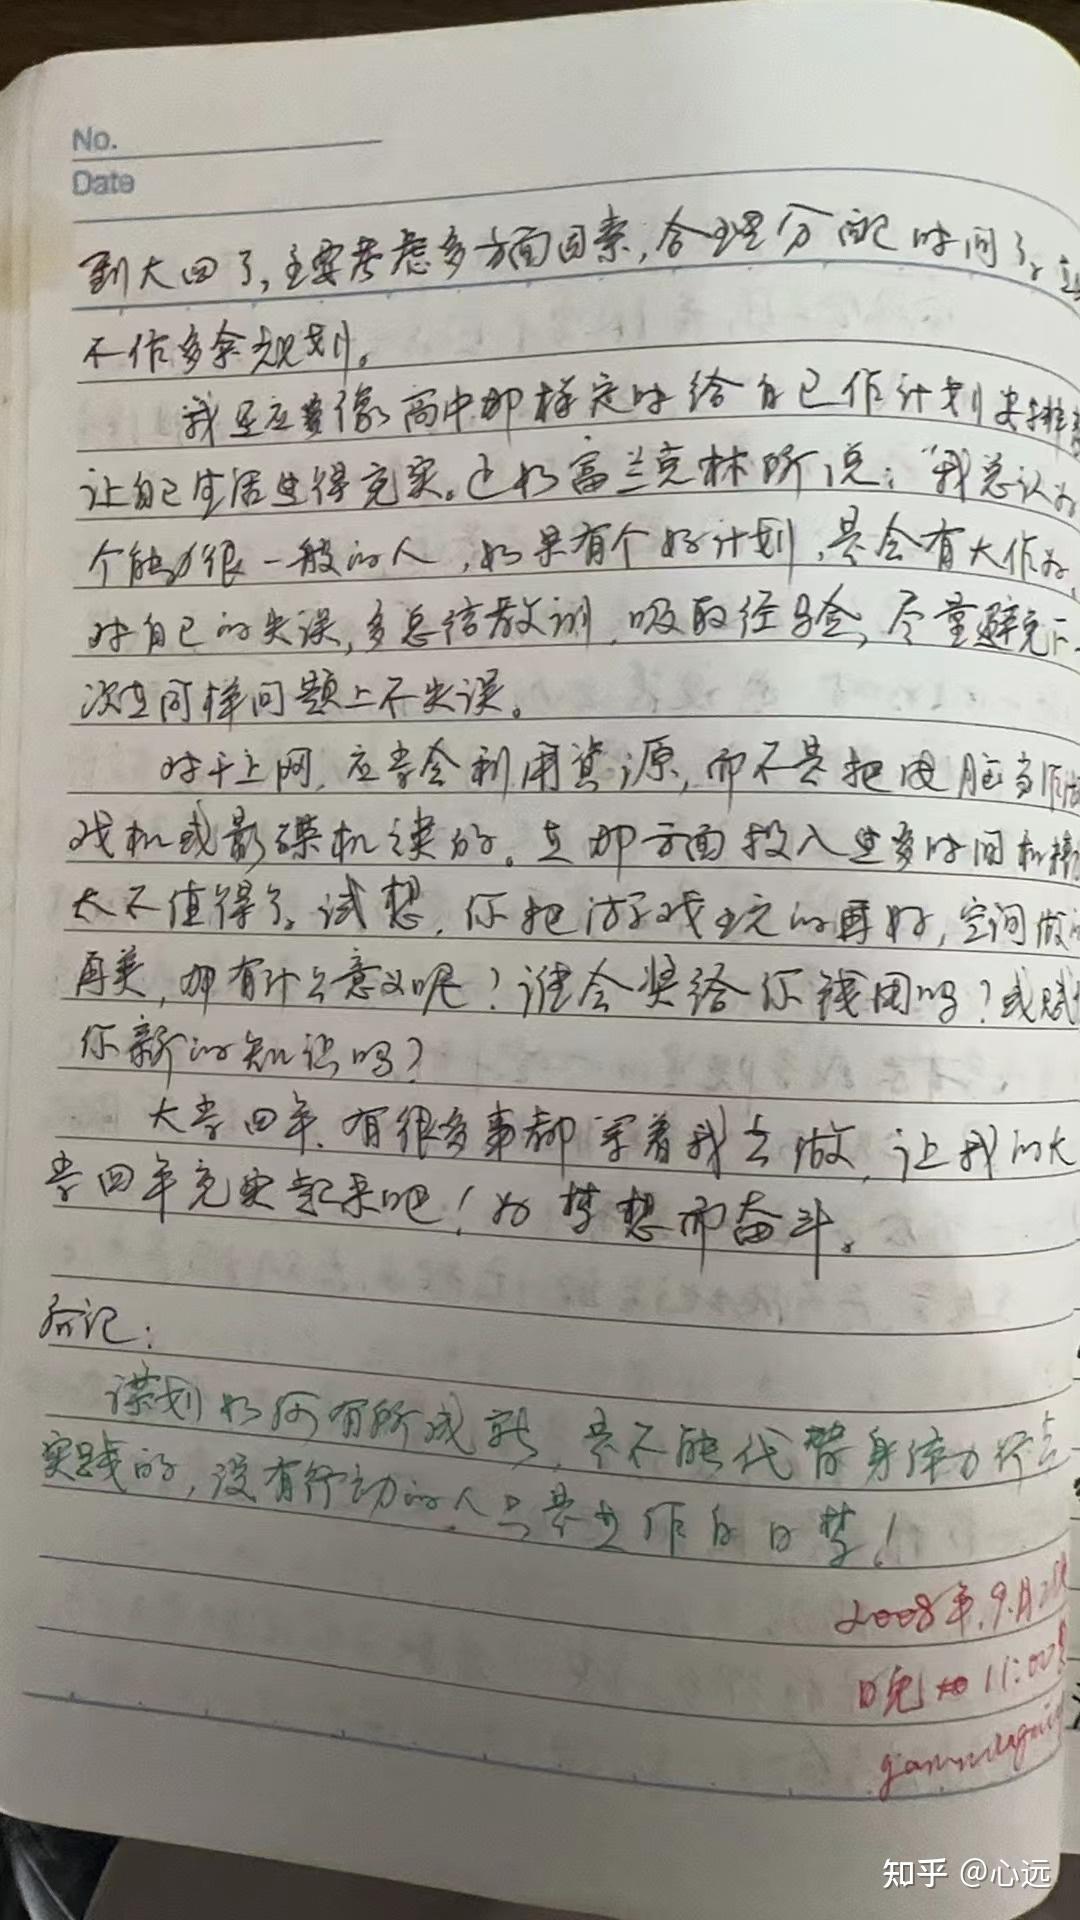 No.
Date
到大四了，主要考虑多方面因素，合理分配时间了，
不作多余规划。
我还应该像高中那样定时给自己作计划安排
让自己生活过得充实。正如富兰克林所说：“我总认为
个能力很一般的人，如果有个好计划，是会有大作为
对自己的失误，多总结教训，吸取经验，尽量避免下
次在同样问题上不失误。
对于上网，应学会利用资源，而不是把电脑当作
戏机或影碟机读的。在那方面投入过多时间和精
太不值得了。试想，你把游戏玩的再好，空间做的
再美，那有什么意义呢？谁会奖给你钱用吗？或赋
你新的知识吗？
大学四年，有很多事都等着我去做，让我的大
学四年充实起来吧！为梦想而奋斗。
后记：
谋划如何有所成就，是不能代替身体力行去
实践的，没有行动的人只是在作白日梦！
2008年.9月
日晚 11:00
知乎 @心远